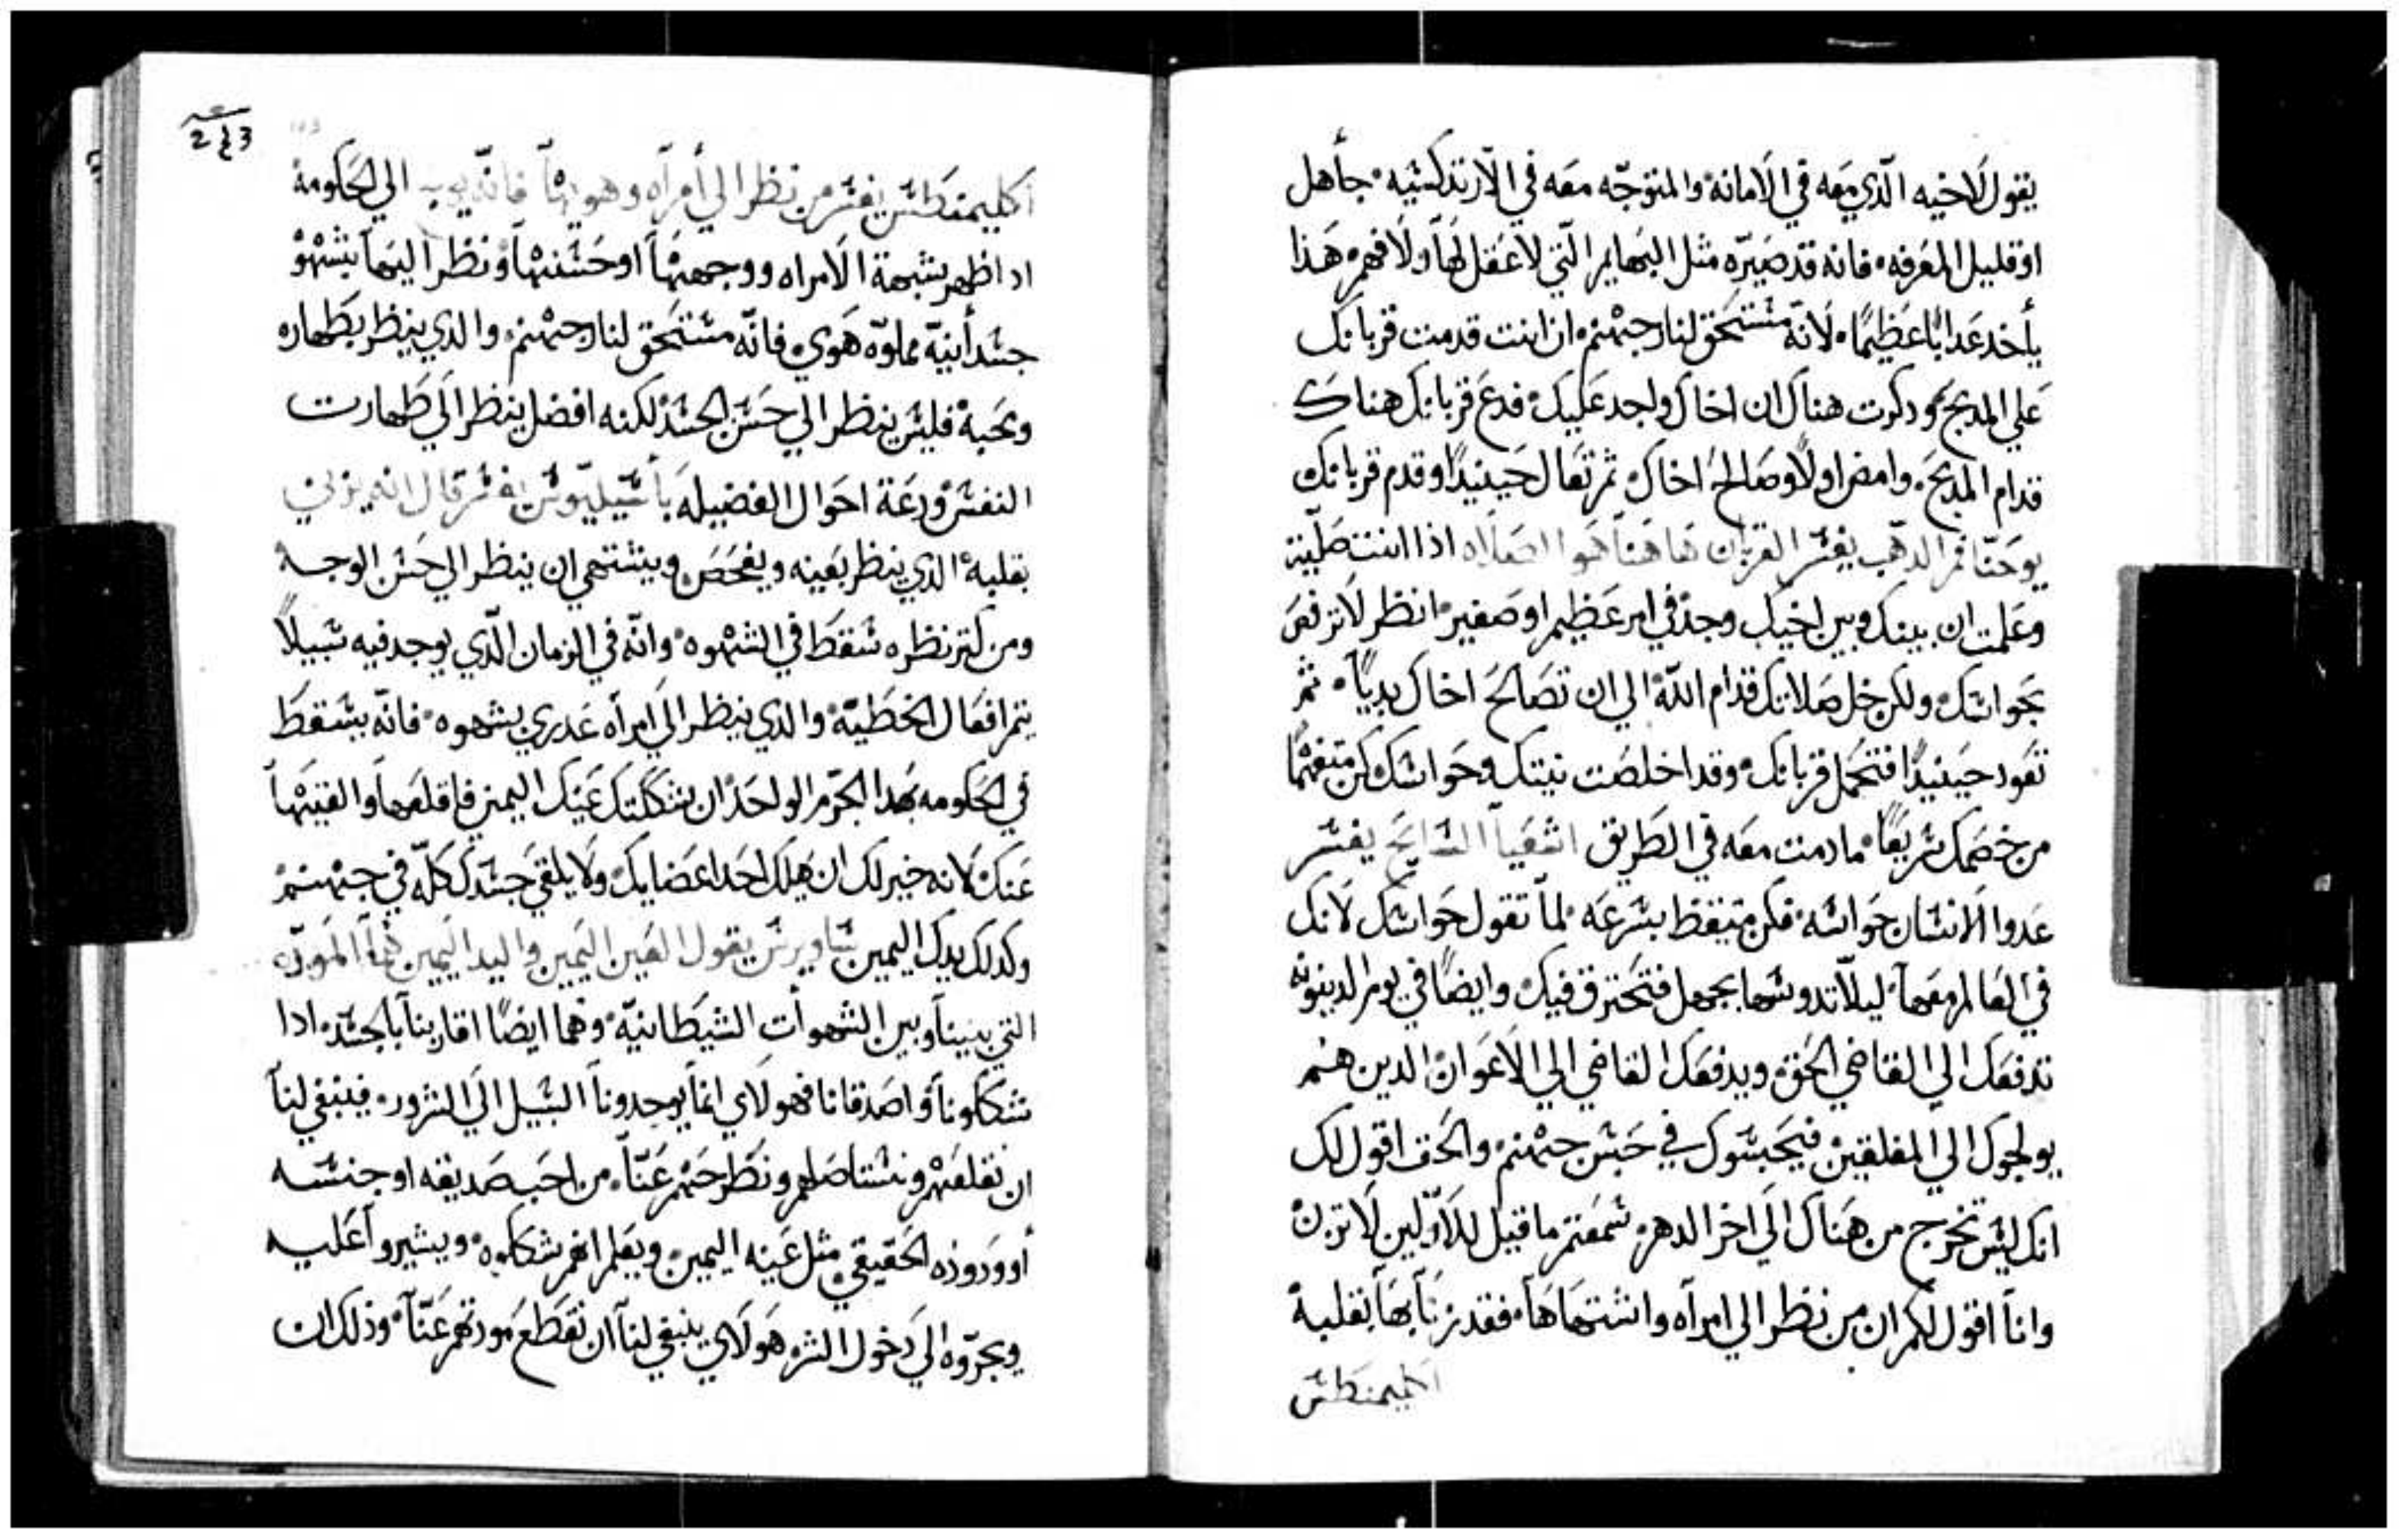 يقول لاخيه الّذي معه في الامانة والمتوجّه معه في الارتدكسيه جاهل
او قليل المعرفه فانه قد صيّره مثل البهايم الّتي لا عقل لها ولا فهم هذا
ياخد عدابًا عظيمًا لانّه مستحق لنار جهنم ان انت قدمت قربانك
علي المدبح ودكرت هناك ان اخاك واجد عليك فدع قربانك هناك
قدام المدبح وامض اولًا وصالح اخاك ثم تعال حينيدًا وقدم قربانك
يوحنّا فم الدهب يفسر القربان هاهنا هو الصلاه اذا انت صليت
وعلمت ان بينك وبين اخيك وجد في امر عظيم او صغير انظر لا ترفع
حواسك ولكن خل صلاتك قدام اللّه الي ان تصالح اخاك بديًا ثم
تعود حينيدًا فتحمل قربانك وقد اخلصت نيتك وحواسك كن متفهمًا
من خصمك سريعًا ما دمت معه في الطريق اشعيا السايح يفسر
عدوا الانسان حواسه فكن متيقظ بسرعه لما تقول حواسك لانك
في العالم معها ليلّا تدوسها بجهل فتحترق فيك وايضًا في يوم الدينونه
تدفعك الي القاضي الحق ويدفعك القاضي الي الاعوان الدين هم
يولجوك الي المغلقين فيحبسوك في حبس جهنم والحق اقول لك
انك ليس تخرج من هناك الي اخر الدهر سمعتم ما قيل للاوّلين لا تزن
وانا اقول لكم ان من نظر الي امراه واشتهاها فقد زنا بها بقلبه
اكليمنطس
2 4 3
اكليمنطس يفسر من نظر الي أمراه وهو فانّه الي الحكومة
ادا ظهر بشبهة الامراه ووجهها او حسنها ونظر اليها بشهوْ
جسدأنيّه مملوّه هوي فانّه مستحق لنار جهنم والذي ينظر بطهاره
ومحبة فليس ينظر الي حسن الجسد لكنه افضل ينظر الي طهارت
النفس ودعة احوال الفضيله باسيليوس يفسر قال انه يزني
بقلبه الذي ينظر بعينه ويفحص ويشتهي ان ينظر الي حسن الوجه
ومن كتر نظره سقط في الشهوه وانّه في الزمان الّذي يوجد فيه سبيلًا
يتم افعال الخطيّة والذي ينظر الي امراه عدري بشهوه فانّه يسقط
في الحكومه بهدا الجرم الواحد ان شككتك عينك اليمين فاقلعها والقيها
عنك لانه خير لك ان يهلك احد اعضايك ولا يلقي جسدك كلّه في جهنم
وكدلك يدك اليمين ساويرس يقول العين اليمين واليد اليمين هما المودّه
التي بيننا وبين الشهوات الشيطانيّه وهما ايضًا اقاربنا بالجسد ادا
شككونا واصدقانا فهولاي انما يوجدونا السبيل الي الشرور فينبغي لنا
ان نقلعهم ونستاصلهم ونطرحهم عنّا من احب صديقه او جنسه
أو ودوده الحقيقي مثل عينه اليمين ويعلم انهم شككوه ويشيروا عليه
ويجرّوه الي دخول الشر هولاي ينبغي لنا ان نقطع مودتهم عنّا وذلك ان